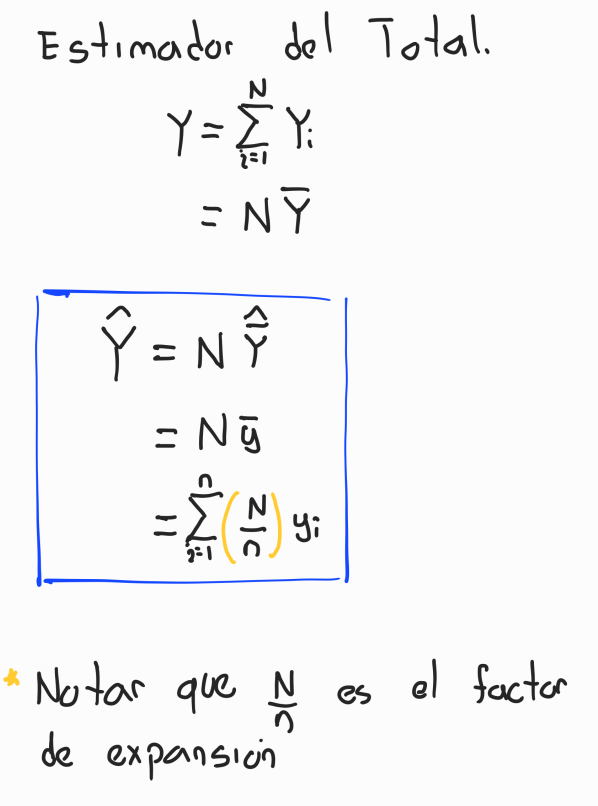 Estimador del Total.
Y = \sum_{i=1}^{N} Y_i
= N \bar{Y}
\hat{Y} = N \hat{\bar{Y}}
= N \bar{y}
= \sum_{i=1}^{n} \left( \frac{N}{n} \right) y_i
* Notar que \frac{N}{n} es el factor
de expansión